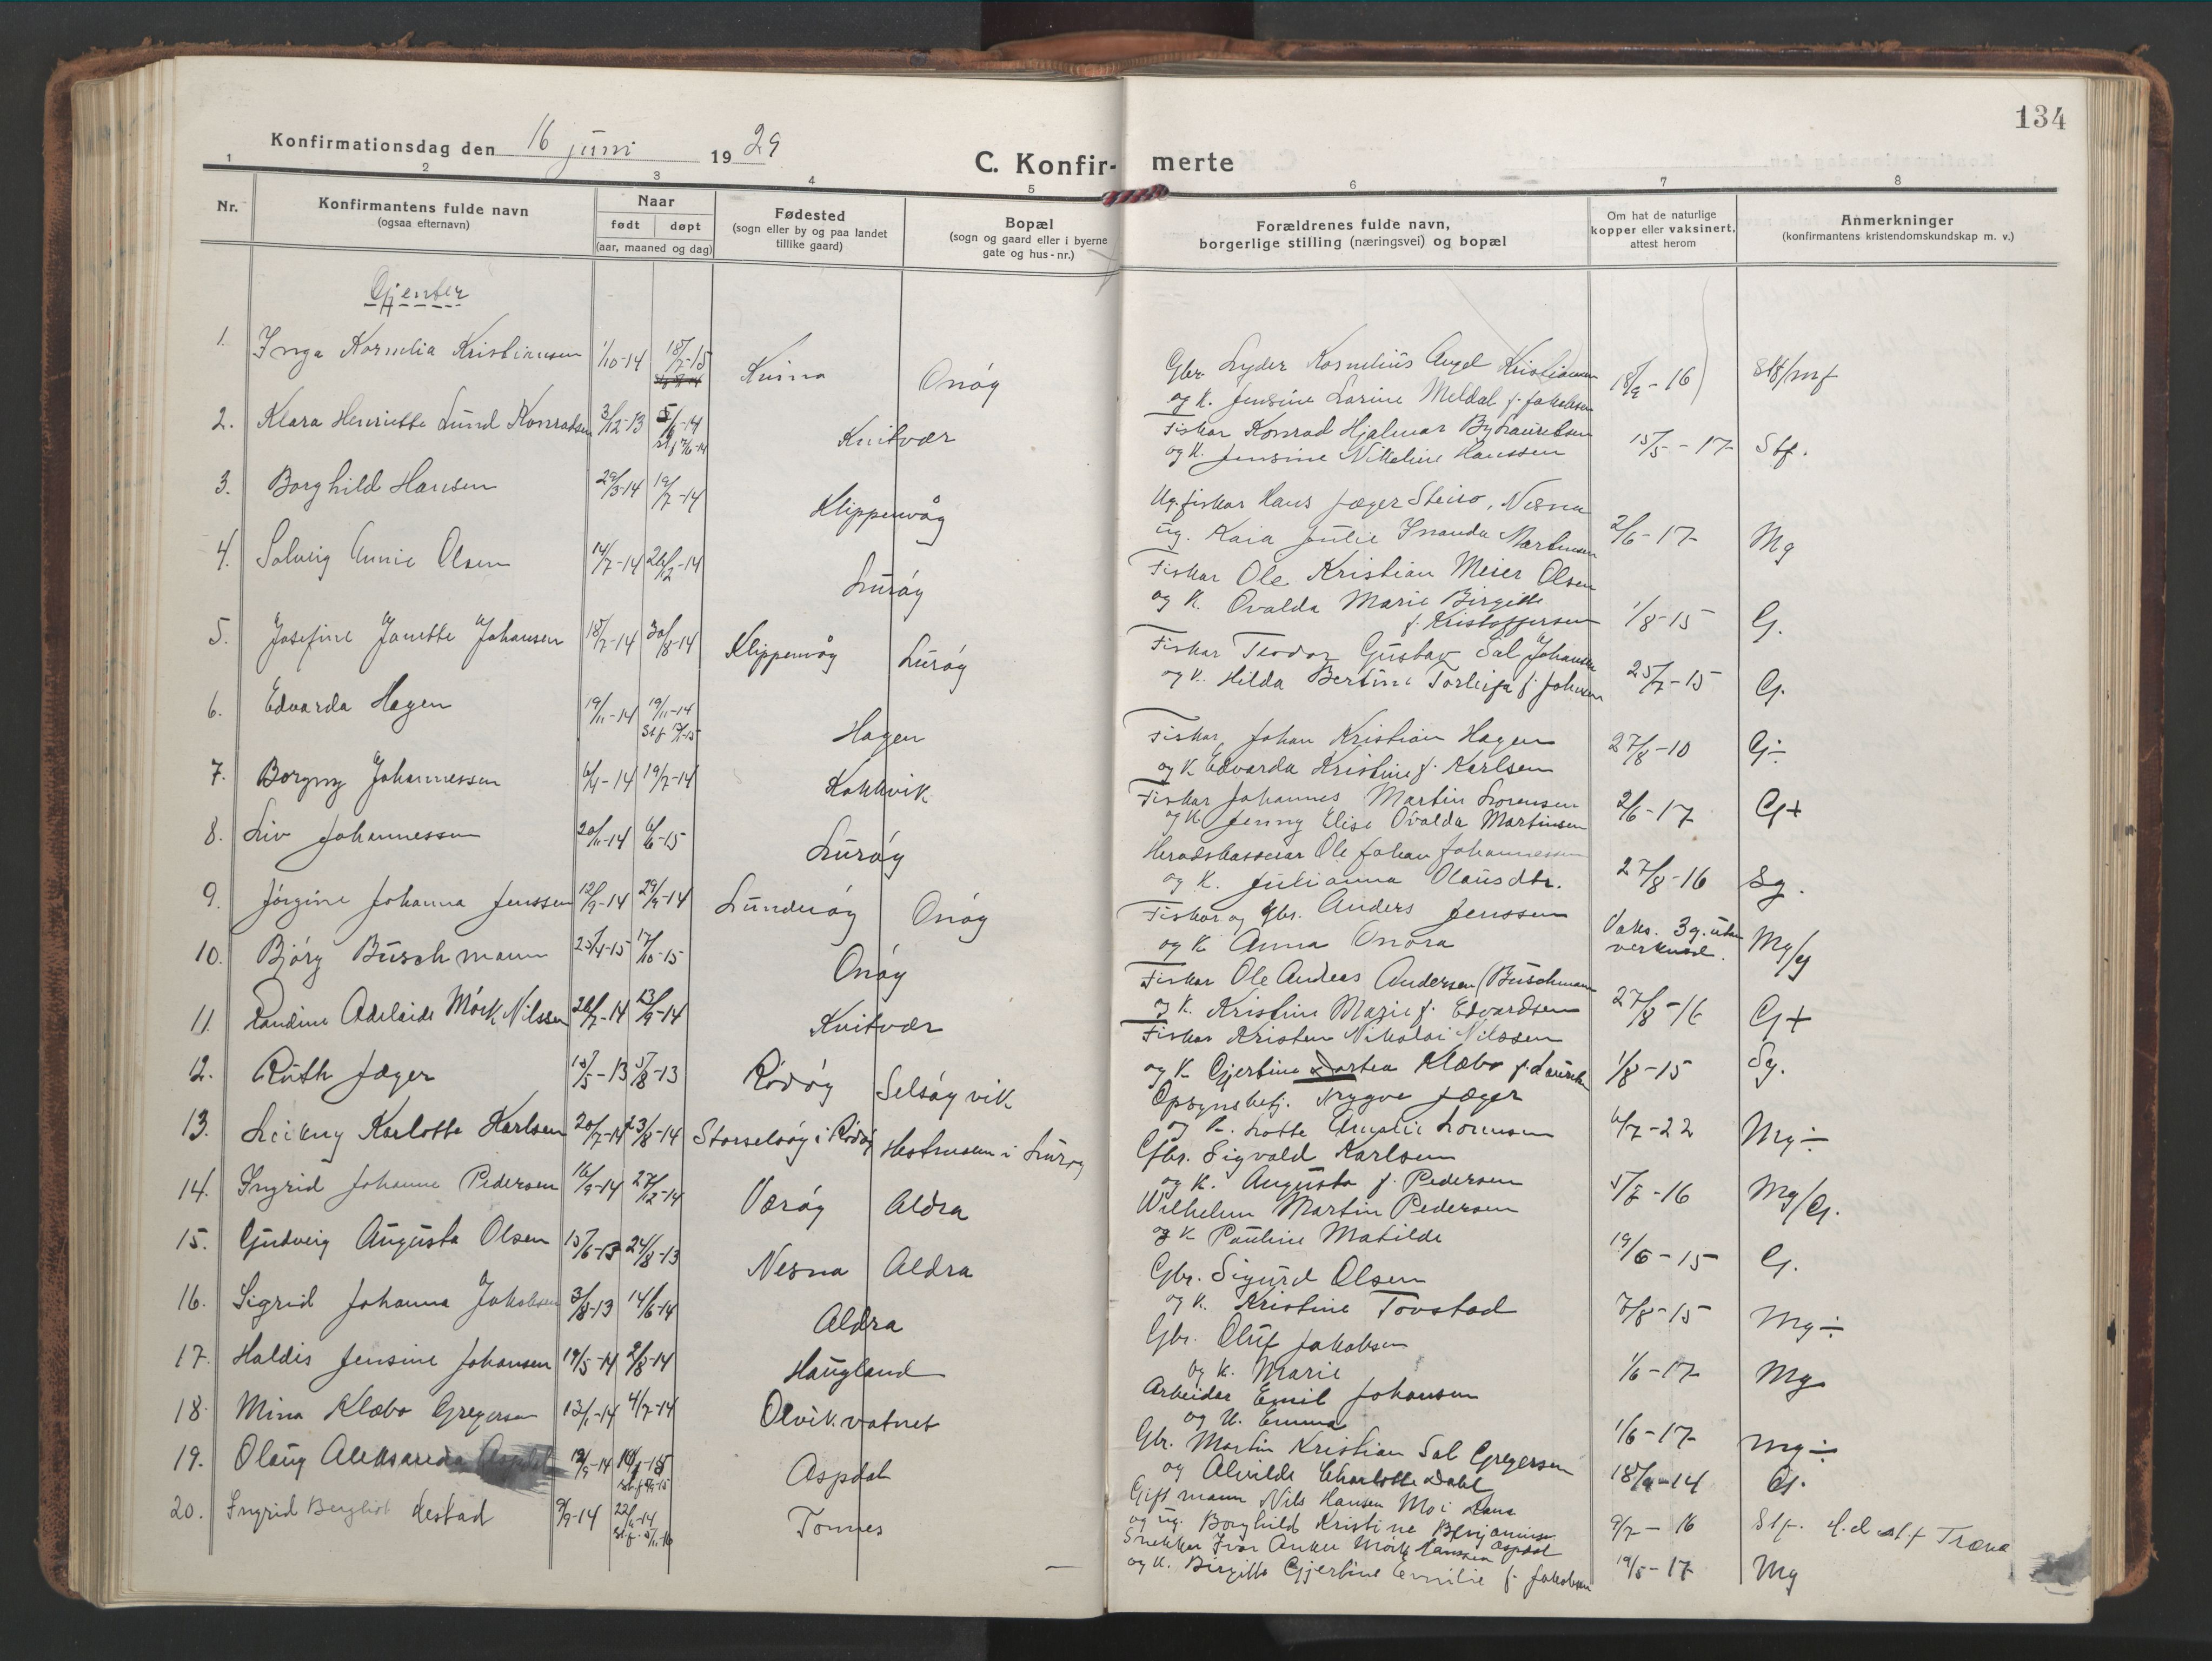 134
Konfirmationsdag den 16 juni 1929
C. Konfirmerte
1 2 3 4 5 6 7 8
Nr.
Konfirmantens fulde navn
(ogsaa efternavn)
Naar
født døpt
(aar, maaned og dag)
Fødested
(sogn eller by og paa landet
tillike gaard)
Bopæl
(sogn og gaard eller i byerne
gate og hus-nr.)
Forældrenes fulde navn,
borgerlige stilling (næringsvei) og bopæl
Om hat de naturlige
kopper eller vaksinert,
attest herom
Anmerkninger
(konfirmantens kristendomskundskap m. v.)
Gjenter
1. Inga Kornelia Kristiansen 1/10-14 18/7-15 Onøy
Gbr. Lyder Kornelius Angel Kristiansen
og K. Jensine Larine Meldal f. Jakobsen 18/9-16
2. Klara Henriette Lund Konradsen 3/12-13 Kvitvær
Fiskar Konrad Hjalmar
og K. Jensine Nikoline Hanssen 15/5-17 Stf.
3. Borghild Hansen 29/3-14 19/7-14 Klippenvåg
Ug. fiskar Hans Jæger Steiro, Nesna
ug. Kaia Julie Inanda Martinsen 2/6-17 Mg
4. Solveig Annie Olsen 14/7-14 26/12-14 Lurøy
Fiskar Ole Kristian Meier Olsen
og K. Ovalda Marie Birgitte
f. Kristoffersen 1/8-15 G.
5. Josefine Janette Johansen 18/7-14 30/8-14 Klippenvåg Lurøy
Fiskar Teodor Gustav Sal Johansen
og K. Hilda Bertine Torleifa f. Johnsen 25/7-15 G.
6. Edvarda Hagen 19/11-14 19/11-14 Hagen
Fiskar Johan Kristian Hagen
og K Edvarda Kristine f. Karlsen 27/8-10 G÷
7. Borgny Johannessen 6/4-14 19/7-14 Kokkvik
Fiskar Johannes Martin Lorensen
og K Jenny Elise Ovalda Martinsen 2/6-17 G+
8. Liv Johannessen 20/11-14 6/6-15 Lurøy
Heradskasserar Ole Johan Johannessen
og K. Julianna Olausdtr. 27/8-16 Sg.
9. Jørgine Johanna Jenssen 12/9-14 29/9-14 Lunderøy Onøy
Fiskar og gbr. Anders Jenssen
og K Anna Onora Vaks. 3 g. utan
verknad. Mg/g
10. Bjørg Buschmann 25/4-15 17/10-15 Onøy
Fiskar Ole Andeas Andersen (Buschmann
og K. Kristine Marie f. Edvardsen 27/8-16 G+
11. Randine Adelaide Mørk Nilssen 26/7-14 13/9-14 Kvitvær
Fiskar Kristen Nikolai Nilssen
og K Gjertine Dortea Klæbo f. Lauritsen 1/8-15 Sg.
12. Ruth Jæger 15/5-13 5/8-13 Rødøy Selsøyvik
Opsynsbetj. Trygve Jæger
og K. Lotte Amalie Lorensen 6/7-22 Mg÷
13. Leikny Karlotte Karlsen 20/7-14 23/8-14 Storselsøy i Rødøy Hestmoen i Lurøy
Gbr. Sigvald Karlsen
og K. Augusta f. Pedersen 5/7-16 Mg/G.
14. Ingrid Johanne Pedersen 16/9-14 27/12-14 Værøy Aldra
Wilhelm Martin Pedersen
og K Pauline Matilde 19/6-15 G.
15. Gudveig Augusta Olsen 15/6-13 24/8-13 Nesna Aldra
Gbr. Sigurd Olsen
og K. Kristine Tovstad 7/8-15 Mg÷
16. Sigrid Johanna Jakobsen 3/8-13 14/6-14 Aldra
Gbr. Oluf Jakobsen
og K. Marie 1/6-17 Mg
17. Haldis Jensine Johansen 19/5-14 2/8-14 Haugland
Arbeider Emil Johansen
og K. Emma 1/6-17 Mg÷
18. Mina Klæbo Gregersen 13/1-14 4/7-14 Olvikvatnet
Gbr. Martin Kristian Sal Gregersen
og Alvilde Charlotte Dahl 18/9-14 G.
19. Olaug Aleksandra Aspdal Aspdal
Gift mann Nils Hansen Mo i Rana
og ug. Borghild Kristine Benjaminsen Aspdal 9/7-16 Stf. d.d. stf Træna
20. Ingrid Bergliot Nestad 9/9-14 22/11-14 Tonnes
Snekker Ivar Anker Mørk Hanssen
og K. Birgitte Gjertine Emilie f. Jakobsen 19/5-17 Mg